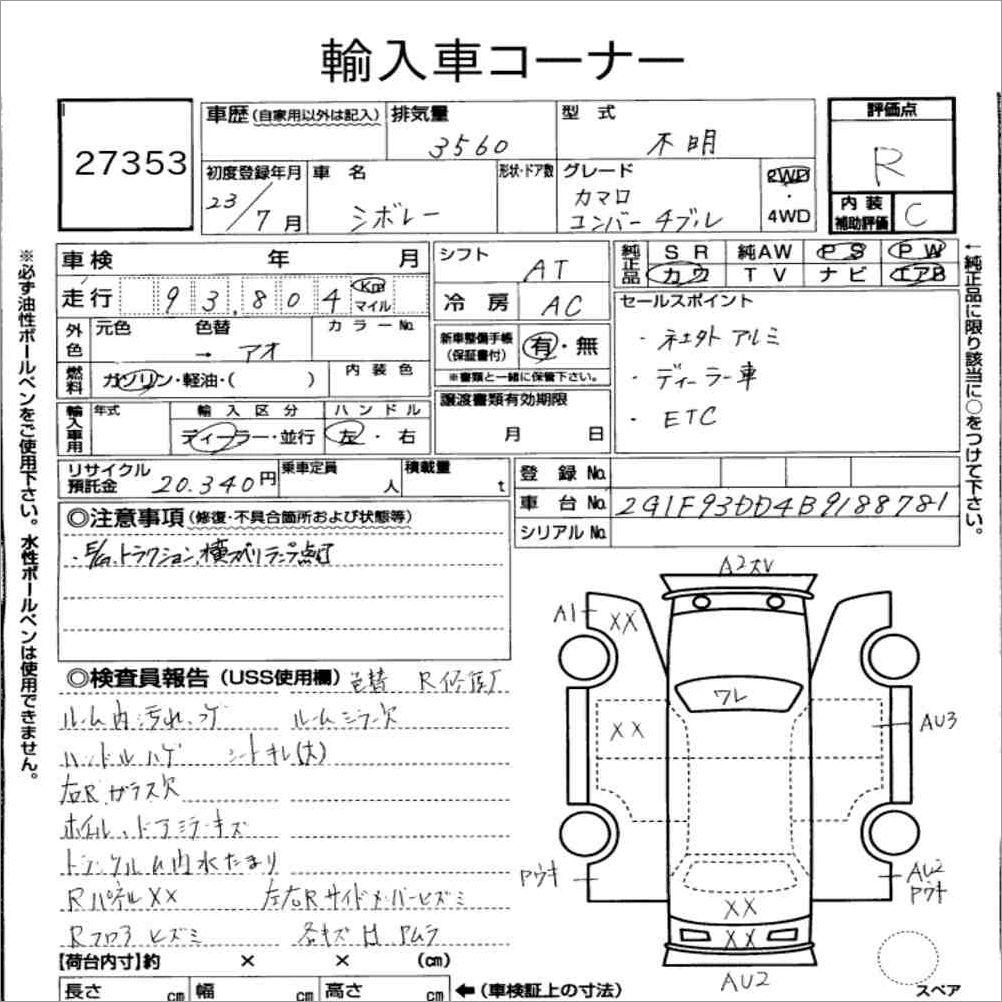 輸入車コーナー
27353
車歴(自家用以外は記入) 排気量 3560 型式 不明
初度登録年月 23/7月 車名 シボレー 形状・ドア数 グレード カマロ コンバーチブル 2WD・4WD
評価点 R
内装補助評価 C
車検 年 月
走行 93,804 Km マイル
外色 元色 色替 → アオ カラーNo.
燃料 ガソリン・軽油・( ) 内装色
輸入車用 年式 輸入区分 ディーラー・並行 ハンドル 左・右
リサイクル預託金 20.340円 乗車定員 人 積載量 t
シフト AT
冷房 AC
新車整備手帳(保証書付) 有・無
※書類と一緒に保管下さい。
譲渡書類有効期限
月 日
純正品 SR 純AW PS PW
カワ TV ナビ エアB
セールスポイント
・社外アルミ
・ディーラー車
・ETC
登録No.
車台No. 2G1F93DD4B9188781
シリアルNo.
※必ず油性ボールペンをご使用下さい。水性ボールペンは使用できません。
←純正品に限り該当に○をつけて下さい。
◎注意事項(修復・不具合箇所および状態等)
・E/G、トラクション、横スベリランプ点灯
◎検査員報告(USS使用欄) 色替 R修復厂
ルーム内汚れ、コゲ ルームミラー欠
ハンドルハゲ シートキレ(大)
右Rガラス欠
ホイル、ドアミラーキズ
トランクルーム内水たまり
RパネルXX 左右Rサイドメンバーヒズミ
Rフロアヒズミ 各キズH アムラ
【荷台内寸】約 × × (cm)
長さ cm 幅 cm 高さ cm ←(車検証上の寸法)
A2スレ
A1
XX
ワレ
XX
AU3
Pウキ
AU2
Pウキ
XX
XX
AU2
スペア